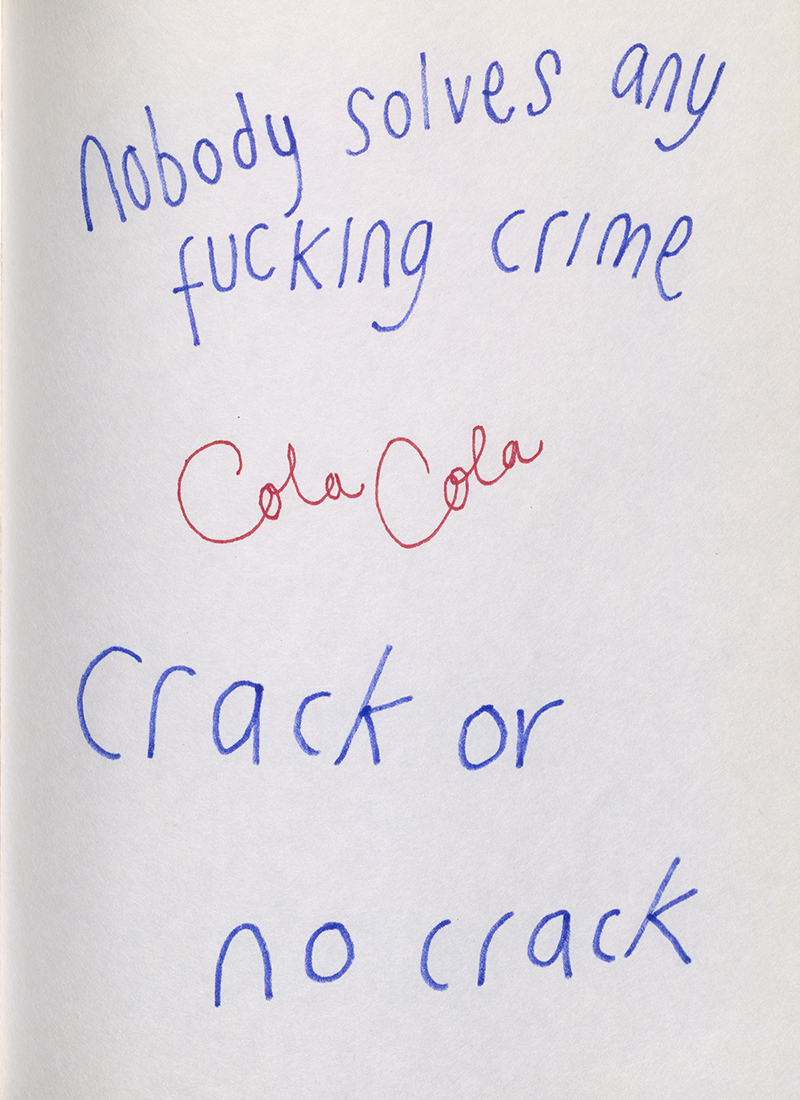 nobody solves any
fucking crime
Cola Cola
Crack or
no crack